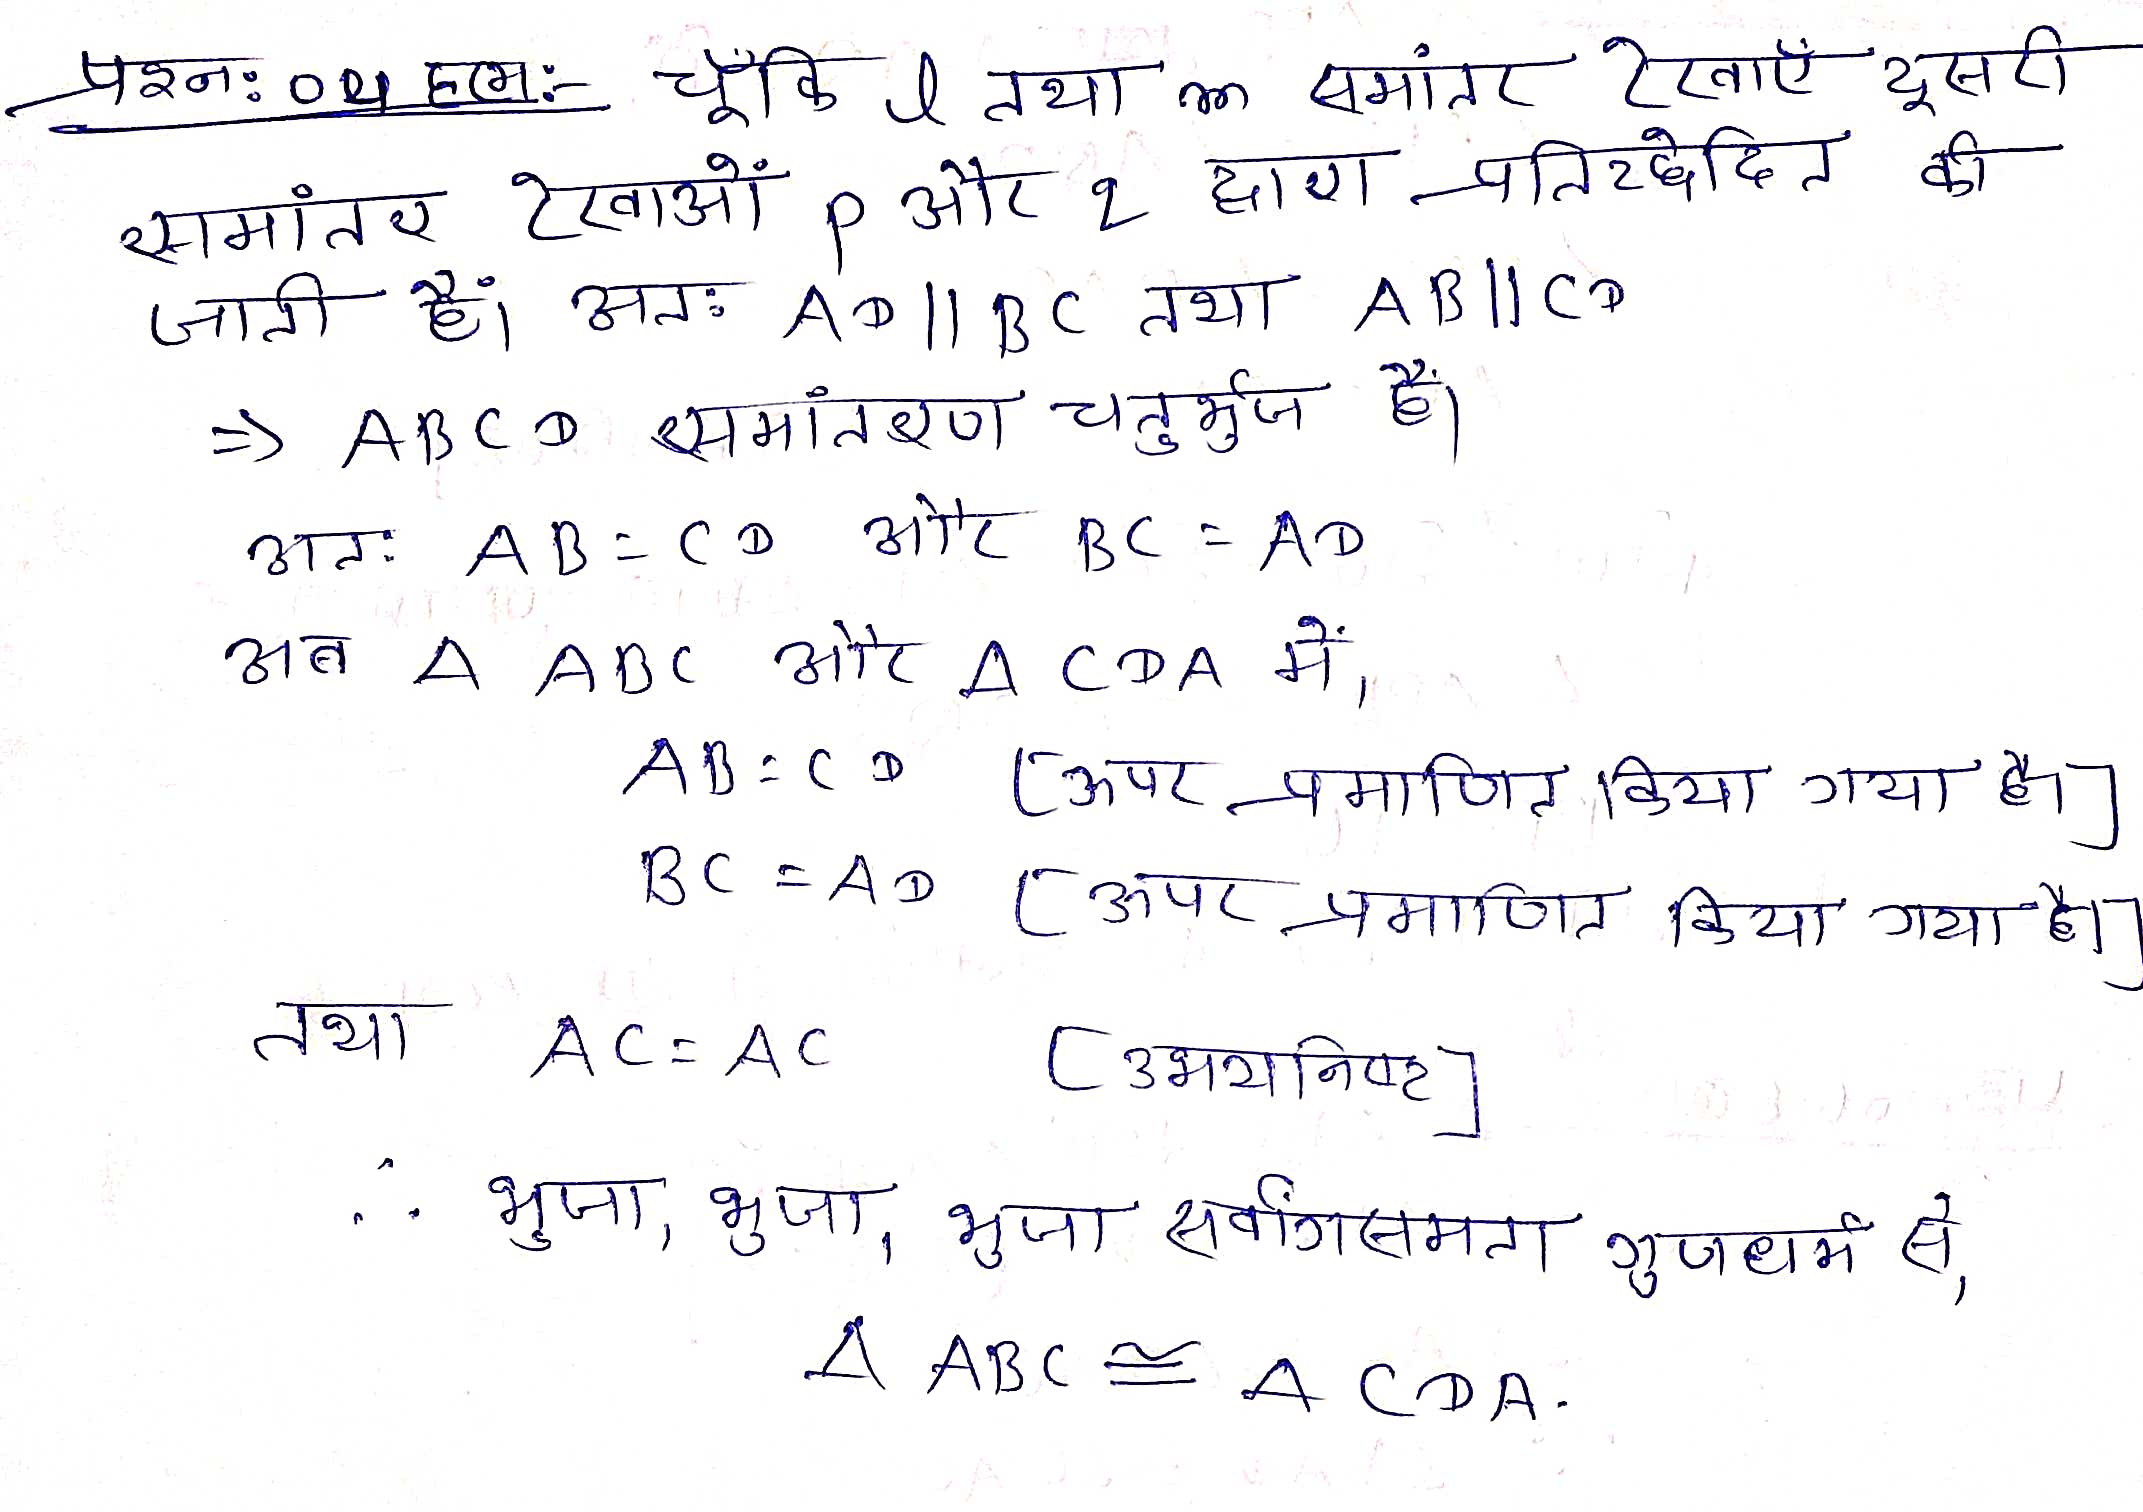 प्रश्न: 04 हल:- चूँकि l तथा m समांतर रेखाएँ दूसरी
समांतर रेखाओं p और q द्वारा प्रतिच्छेदित की
जाती हैं। अतः AD||BC तथा AB||CD
=> ABCD समांतरण चतुर्भुज हैं।
अतः AB = CD और BC = AD
अब Δ ABC और Δ CDA में,
AB = CD [ऊपर प्रमाणित किया गया है।]
BC = AD [ऊपर प्रमाणित किया गया है।]
तथा AC = AC [उभयनिष्ट]
∴ भुजा, भुजा, भुजा सर्वांगसमता गुणधर्म से,
Δ ABC ≅ Δ CDA.